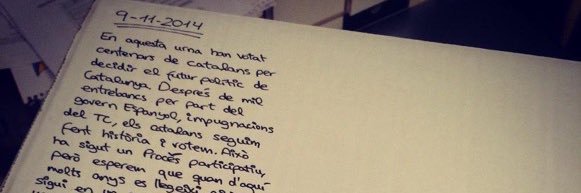 9-11-2014
En aquesta urna han votat
centenars de catalans per
decidir el futur polític de
Catalunya. Després de mil
entrebancs per part del
govern Espanyol, impugnacions
del TC, els catalans seguim
fent història i votem. Això
ha sigut un Procés participatiu,
però esperem que quan d'aquí
molts anys es llegeixi
sigui en